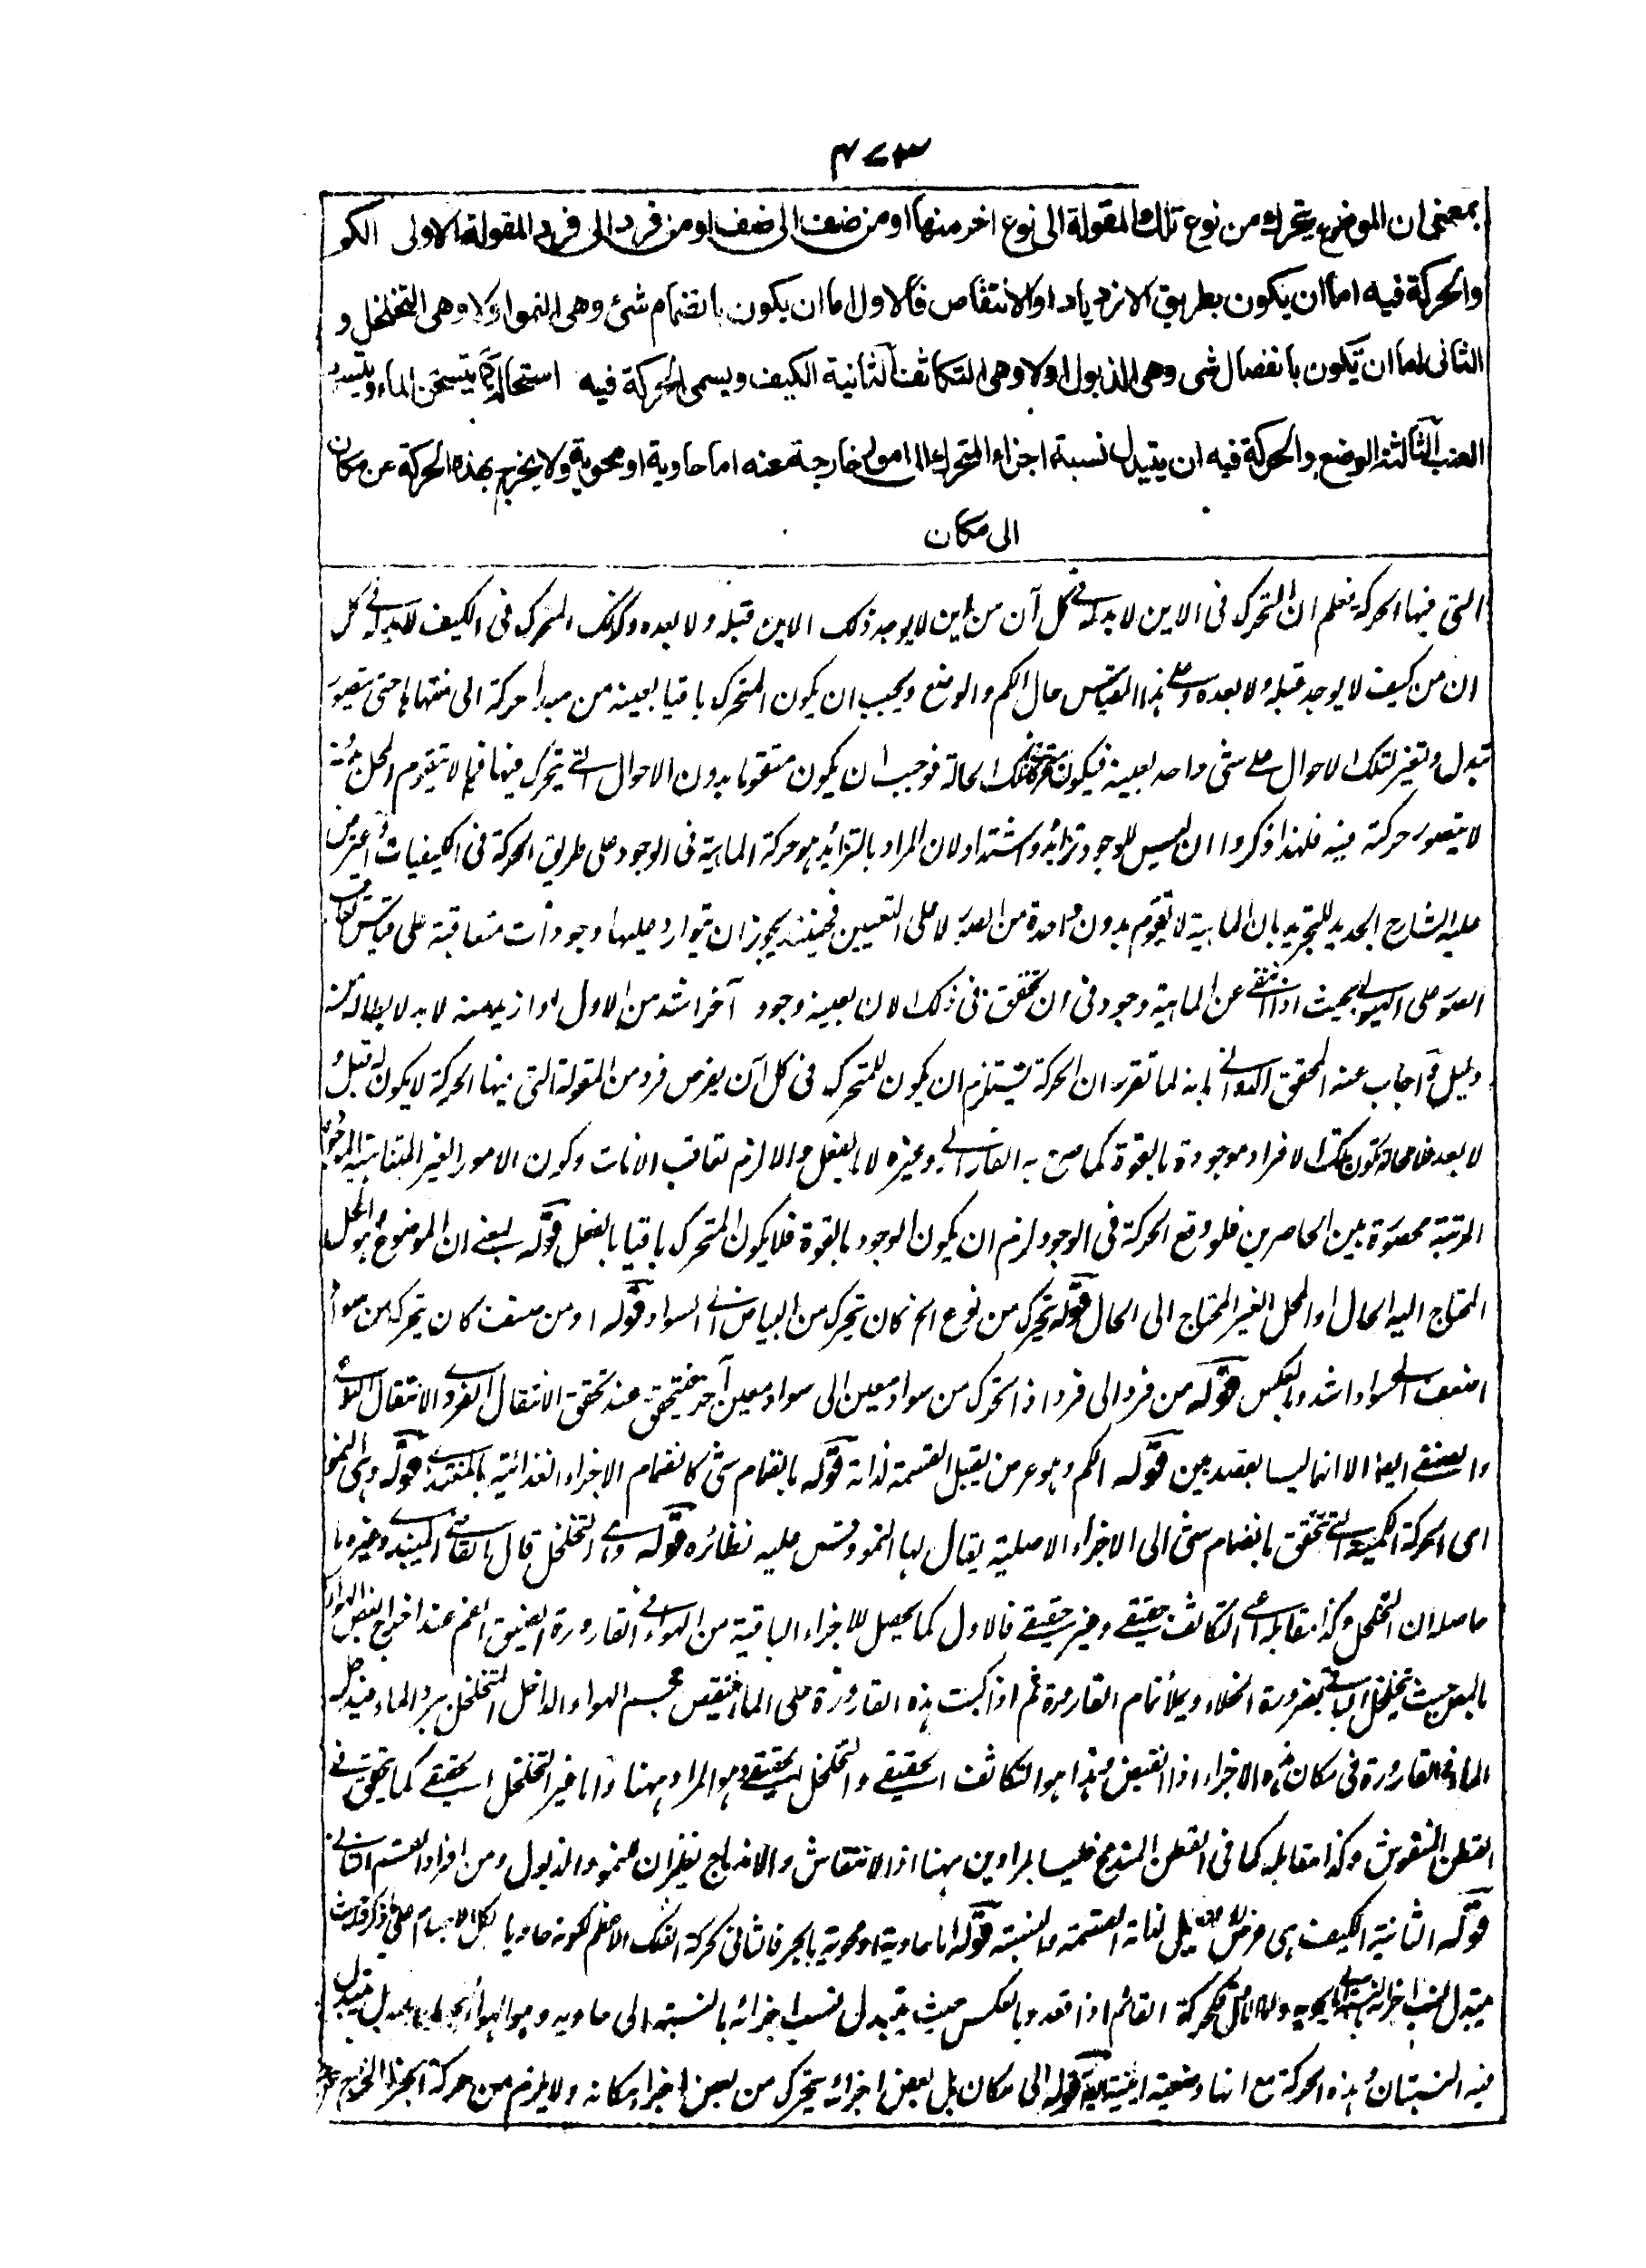 ٤٧٣
بمعنى ان الموضوع يتحرك من نوع تلك المقولة الى نوع اخر منها او من صنف الى صنف او من فرد الى فرد المقولة الاولى الكم
والحركة فيه اما ان يكون بطريق الازدياد او الانتقاص فالاول اما ان يكون بانضمام شئ وهى النمو اولا وهى التخلخل و
الثانى اما ان يكون بانفصال شى وهى الذبول اولا وهى التكاثف الثانية الكيف ويسمى الحركة فيه استحالة كما يتسخن الماء ويتسود
العنب الثالثة الوضع والحركة فيه ان يتبدل نسبة اجزاء المتحرك الى امور خارجة عنه اما حاوية او محوية ولا يخرج بهذه الحركة عن مكان
الى مكان
التى فيها الحركة فعلم ان المتحرك فى الاين لا بد له فى كل آن من اين لا يوجد ذلك الاين قبله ولا بعده وكذلك المتحرك فى الكيف لا بد له فى كل
ان من كيف لا يوجد قبله ولا بعده وعلى هذا القياس حال الكم والوضع ويجب ان يكون المتحرك باقيا بعينه من مبدأ حركة الى منتهاها حتى يتصور
تبدل وتغير لتلك الاحوال على شى واحد بعينه فيكون متحركا تلك الحالة فوجب ان يكون متقوما بدون الاحوال التى يتحرك فيها فما لا يتقوم المحل بدونه
لا يتصور حركته فيه فلهذا ذكروا ان ليس للوجود تزائد واشتداد لان المراد بالتزائد هو حركة الماهية فى الوجود على طريق الحركة فى الكيفيات واعترض
عليه الشارح الجديد للتجريد بان الماهية لا تقوم بدون واحدة من الصور لا على التعيين فحينئذ يجوز ان يتوارد عليها وجودات متعاقبة على قياس تعاقب
الصور على الهيولى بحيث اذا انتفى عن الماهية وجود فى ان تحقق فى ذلك الان بعينه وجود آخر اشد من الاول او ازيد منه لا بد لابطاله من
دليل واجاب عنه المحقق الدوانى بانه لما تقرر ان الحركة تستلزم ان يكون للمتحرك فى كل آن يفرض فرد من المقولة التى فيها الحركة لا يكون له قبل و
لا بعد فلا محالة تكون تلك الافراد موجودة بالقوة كما صرح به الفارابى وغيره لا بالفعل والا لزم تعاقب الانات وكون الامور الغير المتناهية الموجودة
المرتبة محصورة بين الحاصرين فلو وقع الحركة فى الوجود لزم ان يكون الوجود بالقوة فلا يكون المتحرك باقيا بالفعل قوله بمعنى ان الموضوع وهو المحل
المحتاج اليه الحال او المحل الغير المحتاج الى الحال قوله يتحرك من نوع الخ كان يتحرك من البياض الى السواد قوله او من صنف كان يتحرك من سواد
اضعف الى سواد اشد وبالعكس قوله من فرد الى فرد اذا تحرك من سواد معين الى سواد معين آخر فيتحقق عند تحقق الانتقال الفردى الانتقال النوعى
والصنفى ايضا الا انهما ليسا بقصديين قوله الكم وهو عرض يقبل القسمة لذاته قوله بانضمام شئ كانضمام الاجزاء الغذائية بالمغتذى قوله وهى النمو
اى الحركة الكمية التى تتحقق بانضمام شئ الى الاجزاء الاصلية يقال لها النمو وقس عليه نظائره قوله وهى التخلخل قال القاضى الميبذى وغيره ما
حاصله ان التخلخل وكذا مقابله اعنى التكاثف حقيقى وغير حقيقى فالاول كما يحصل للاجزاء الباقية من الهواء فى القارورة الضيق الفم عند اخراج بعض الهواء
بالمص حيث يتخلخل الباقى بضرورة الخلاء ويملأ تمام القارورة ثم اذا كبت هذه القارورة على الماء فينقبض حجم الهواء الداخل المتخلخل ببرد الماء فيدخل
الماء فى القارورة فى مكان هذه الاجزاء اذا انقبض وهذا هو التكاثف الحقيقى والتخلخل الحقيقى وهو المراد ههنا واما غير التخلخل الحقيقى كما يتحقق فى
القطن المنفوش وكذا مقابله كما فى القطن المندمج فليسا بمرادين ههنا اذ الانتفاش والاندماج نظيران للنمو والذبول ومن افراد القسم الثانى
قوله الثانية الكيف هى عرض لا يقبل لذاته القسمة والنسبة قوله اما حاوية او محوية بالجر فالثانى كحركة الفلك الاعظم لكونه حاويا لكل الاجسام على ما ذكر فحيث
يتبدل نسب اجزائه بالنسبة الى ما يحويه والاول كحركة القائم اذا قعد وبالعكس حيث يتبدل نسب اجزائه بالنسبة الى حاويه وهو الهواء
فيه النسبتان هذه الحركة مع انها وضعية اينية ايضا قوله الى مكان بل بعض اجزائه يتحرك من بعض اجزاء مكانه ولا يلزم من حركة الجزء الخروج عن